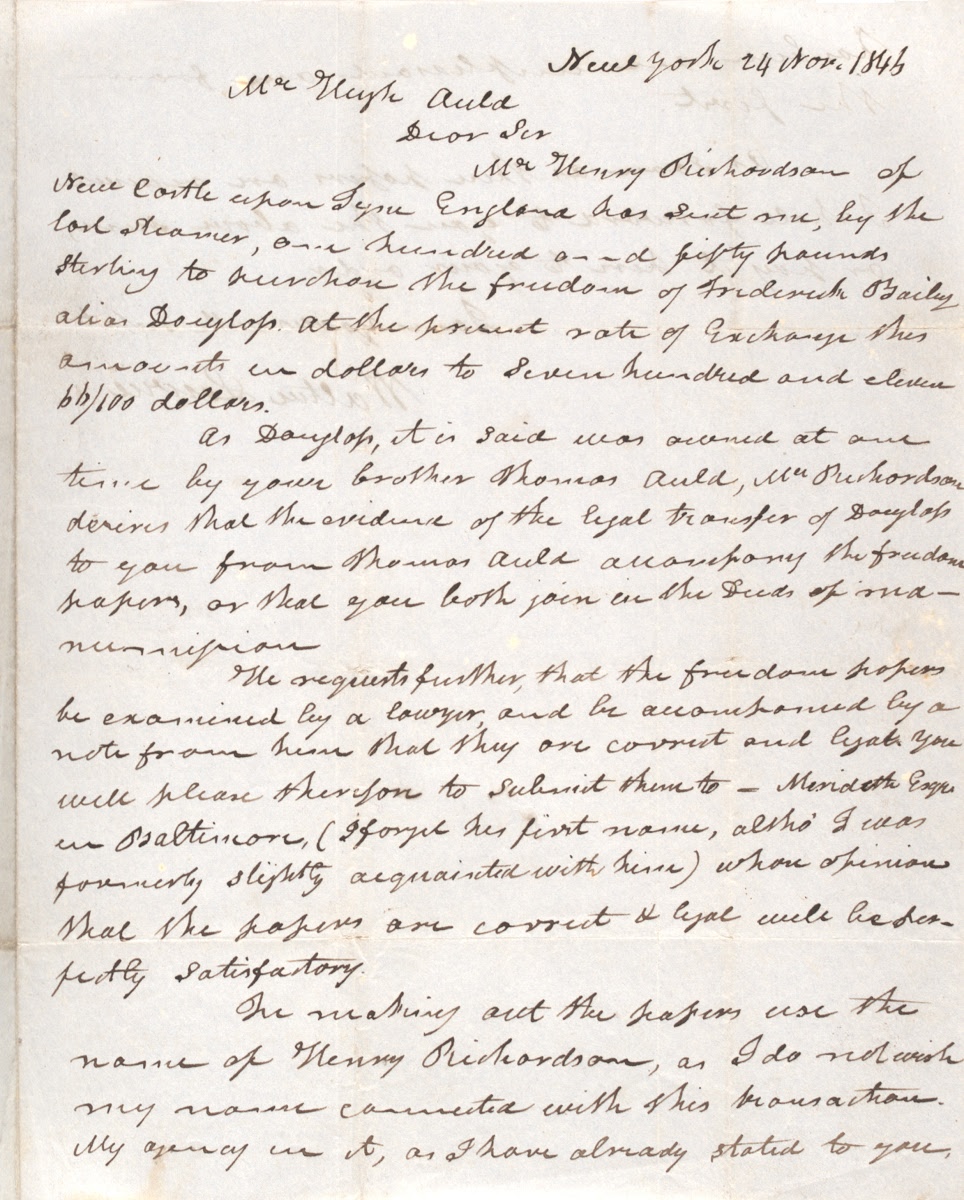 New York 24 Nov. 1846
Mr Hugh Auld
Dear Sir
Mr Henry Richardson of
New Castle upon Tyne England has sent me, by the
last steamer, one hundred and fifty pounds
sterling to purchase the freedom of Frederick Bailey
alias Douglass. At the present rate of Exchange this
amounts in dollars to Seven hundred and eleven
66/100 dollars.
As Douglass, it is said was owned at one
time by your brother Thomas Auld, Mr Richardson
desires that the evidence of the legal transfer of Douglass
to you from Thomas Auld accompany the freedom
papers, or that you both join in the Deeds of ma-
numission
He requests further, that the freedom papers
be examined by a lawyer, and be accompanied by a
note from him that they are correct and legal. You
will please therefore to submit them to — Meridith Esqr
in Baltimore, (I forget his first name, altho' I was
formerly slightly acquainted with him) whose opinion
that the papers are correct & legal will be per-
fectly satisfactory.
In making out the papers use the
name of Henry Richardson, as I do not wish
my name connected with this transaction.
My agency in it, as I have already stated to you,